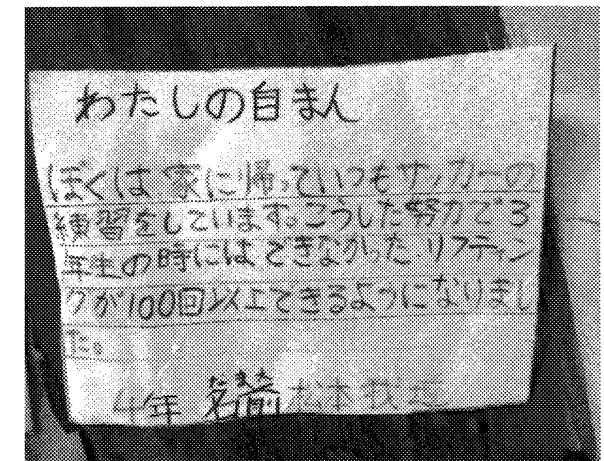 わたしの自まん
ぼくは家に帰っていつもサッカーの
練習をしています。こうした努力で3
年生の時にはできなかったリフティン
グが100回以上できるようになりまし
た。
なまえ
4年 名前 松本